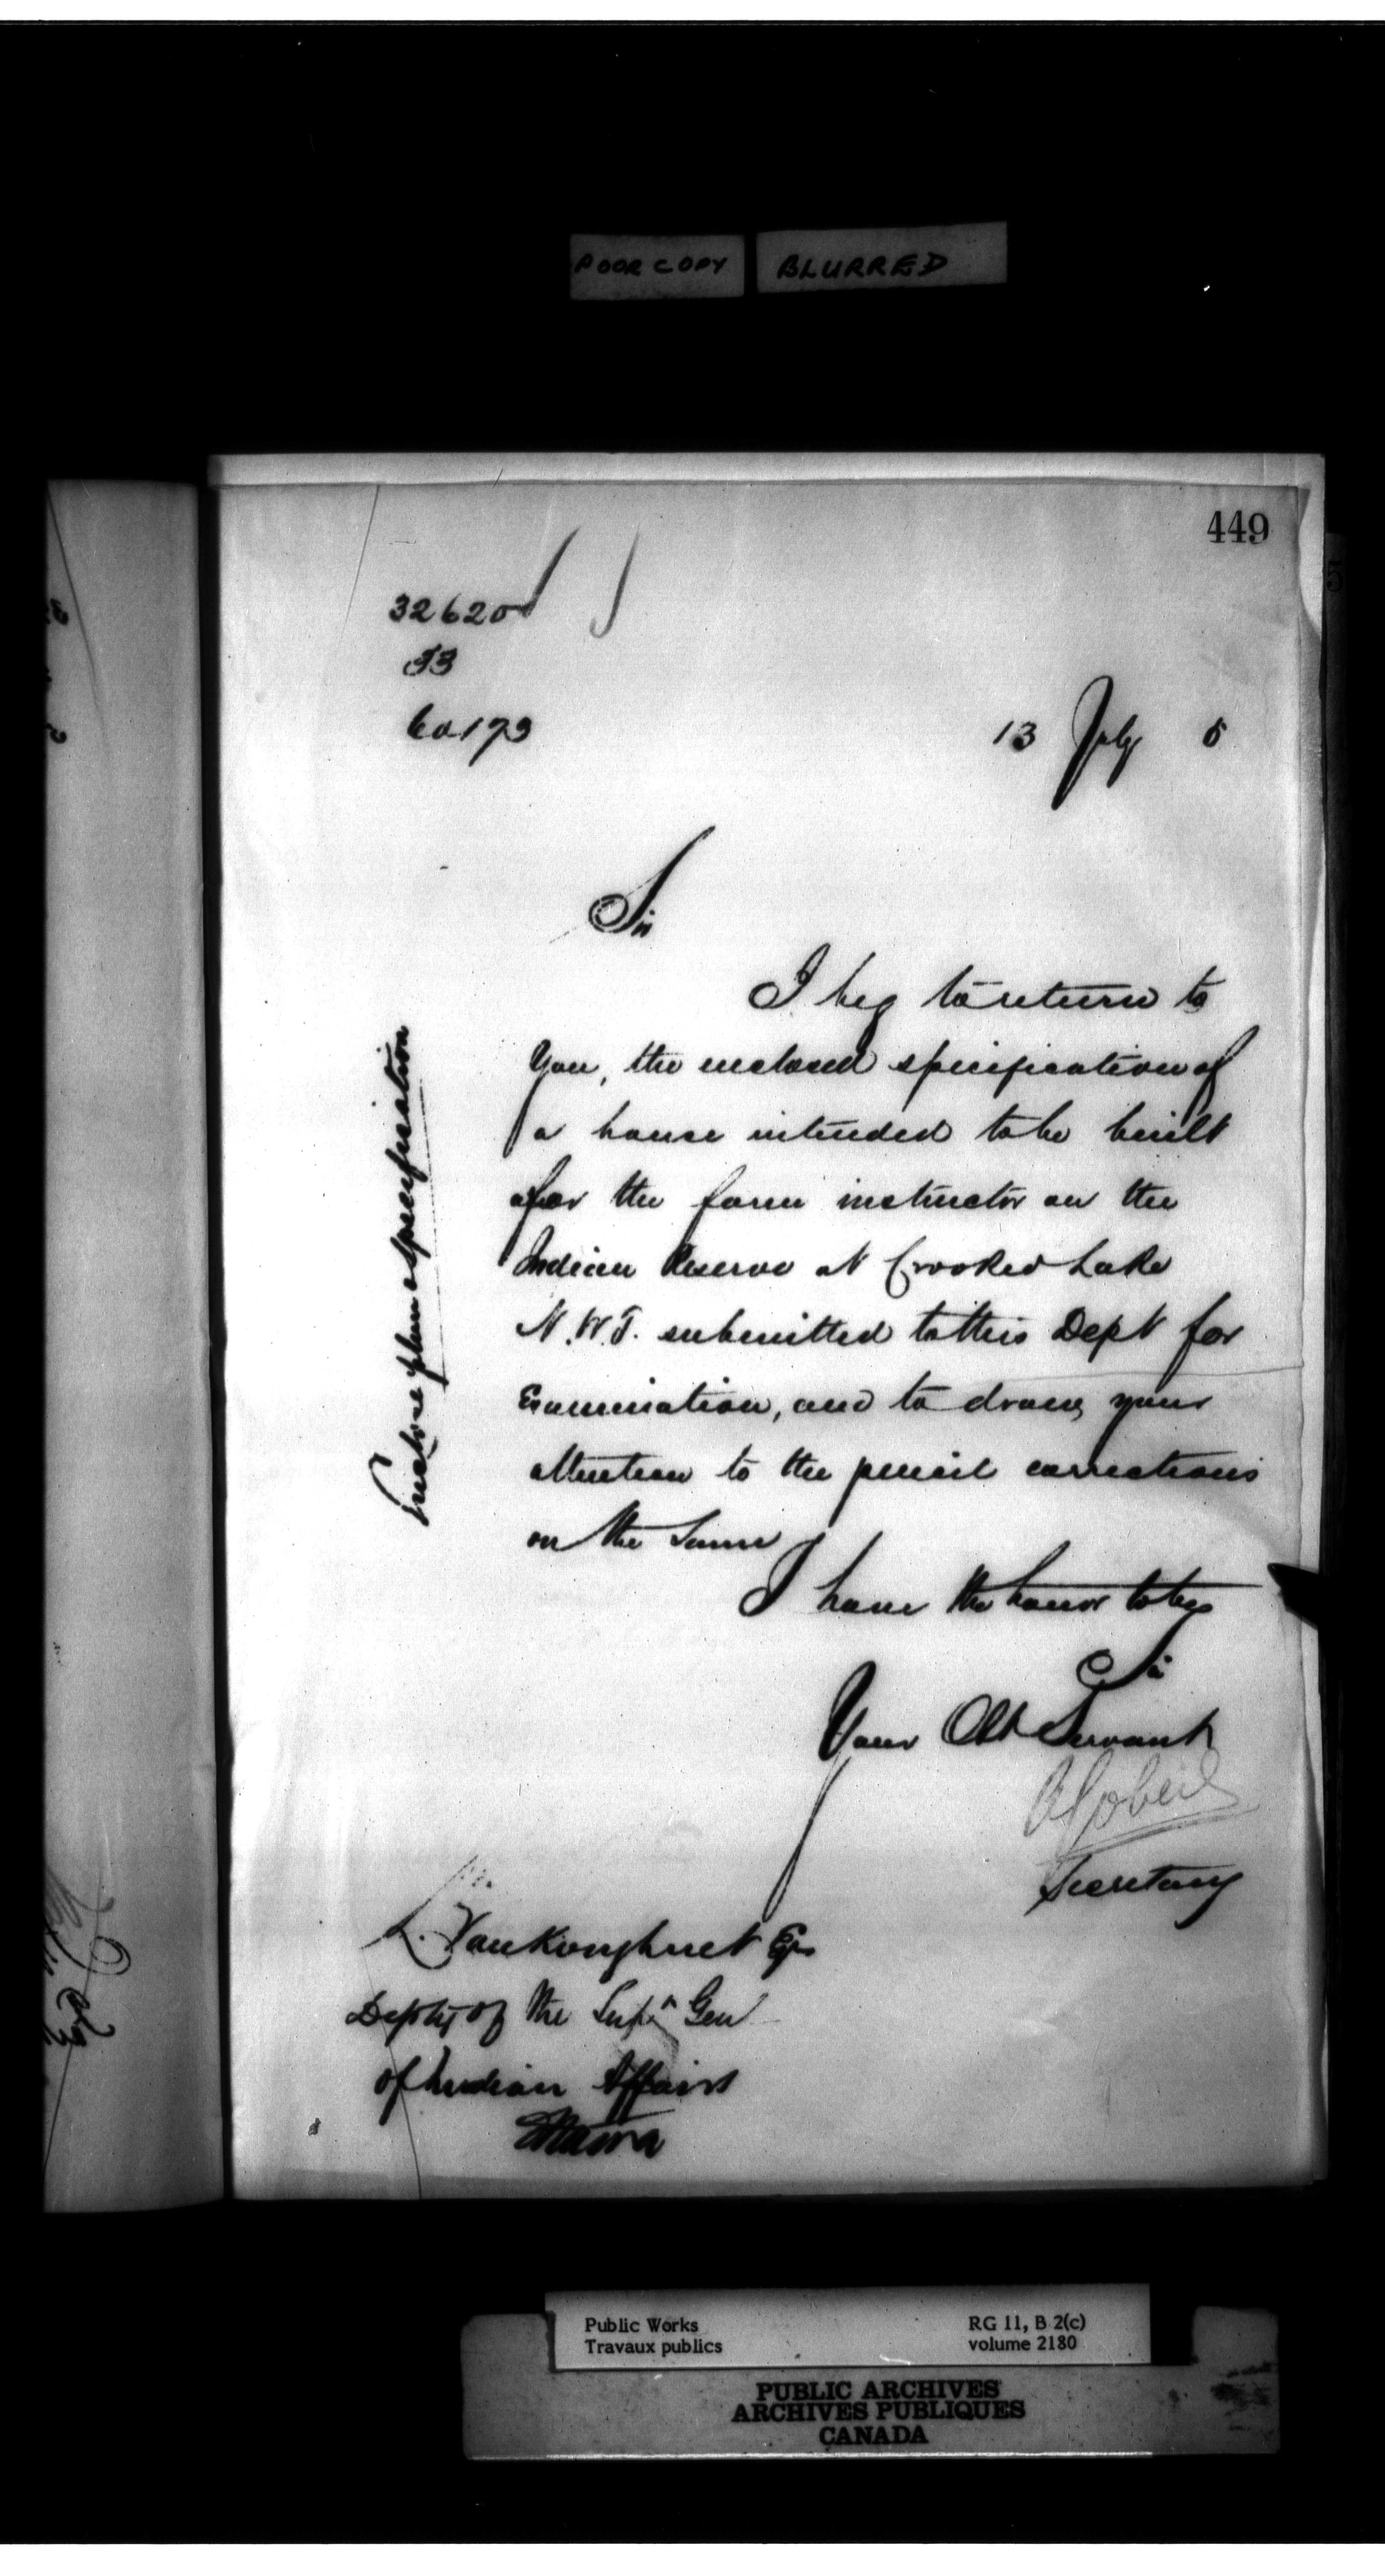 POOR COPY BLURRED
449
32620
33
60179
13 July 5
Sir
I beg to return to
you, the enclosed specification of
a house intended to be built
for the farm instructor on the
Indian Reserve at Crooked Lake
N.W.T. submitted to this Dept for
Examination, and to draw your
attention to the pencil corrections
on the same
I have the honor to be
Sir
Your Obt Servant
A Gobeil
Secretary
Enclose plan & specification
L. Vankoughnet Esq
Depty of the Supt Gen
of Indian Affairs
Ottawa
Public Works
Travaux publics
RG 11, B 2(c)
volume 2180
PUBLIC ARCHIVES
ARCHIVES PUBLIQUES
CANADA